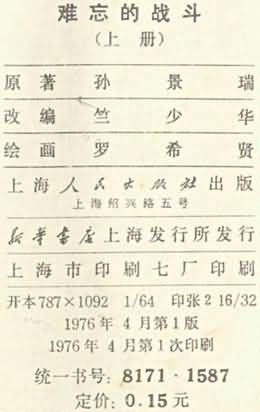 难忘的战斗
(上册)
原著 孙景瑞
改编 竺少华
绘画 罗希贤
上海人民出版社出版
上海绍兴路五号
新华书店上海发行所发行
上海市印刷七厂印刷
开本787×1092 1/64 印张2 16/32
1976年4月第1版
1976年4月第1次印刷
统一书号: 8171·1587
定价: 0.15元